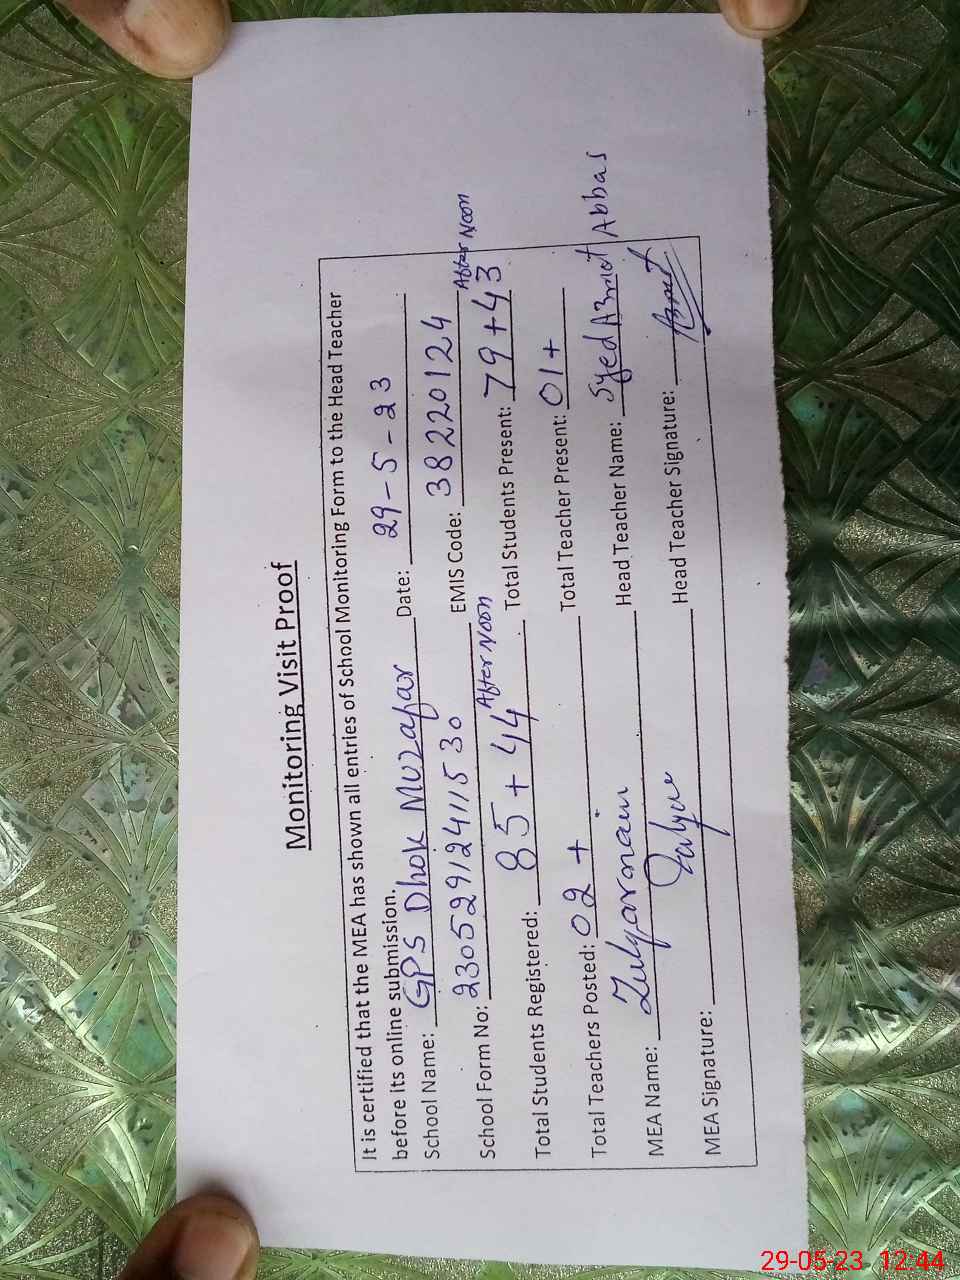 Monitoring Visit Proof
It is certified that the MEA has shown all entries of School Monitoring Form to the Head Teacher
before its online submission.
School Name: GPS Dhok Muzafar Date: 29-5-23
School Form No: 230529124111530 EMIS Code: 38220124
Total Students Registered: 85 + 44 After Noon Total Students Present: 79 + 43 After Noon
Total Teachers Posted: 02 + Total Teacher Present: 01 +
MEA Name: Head Teacher Name: Syed Azmat Abbas
MEA Signature: Head Teacher Signature: Azmat
29-05-23 12:44